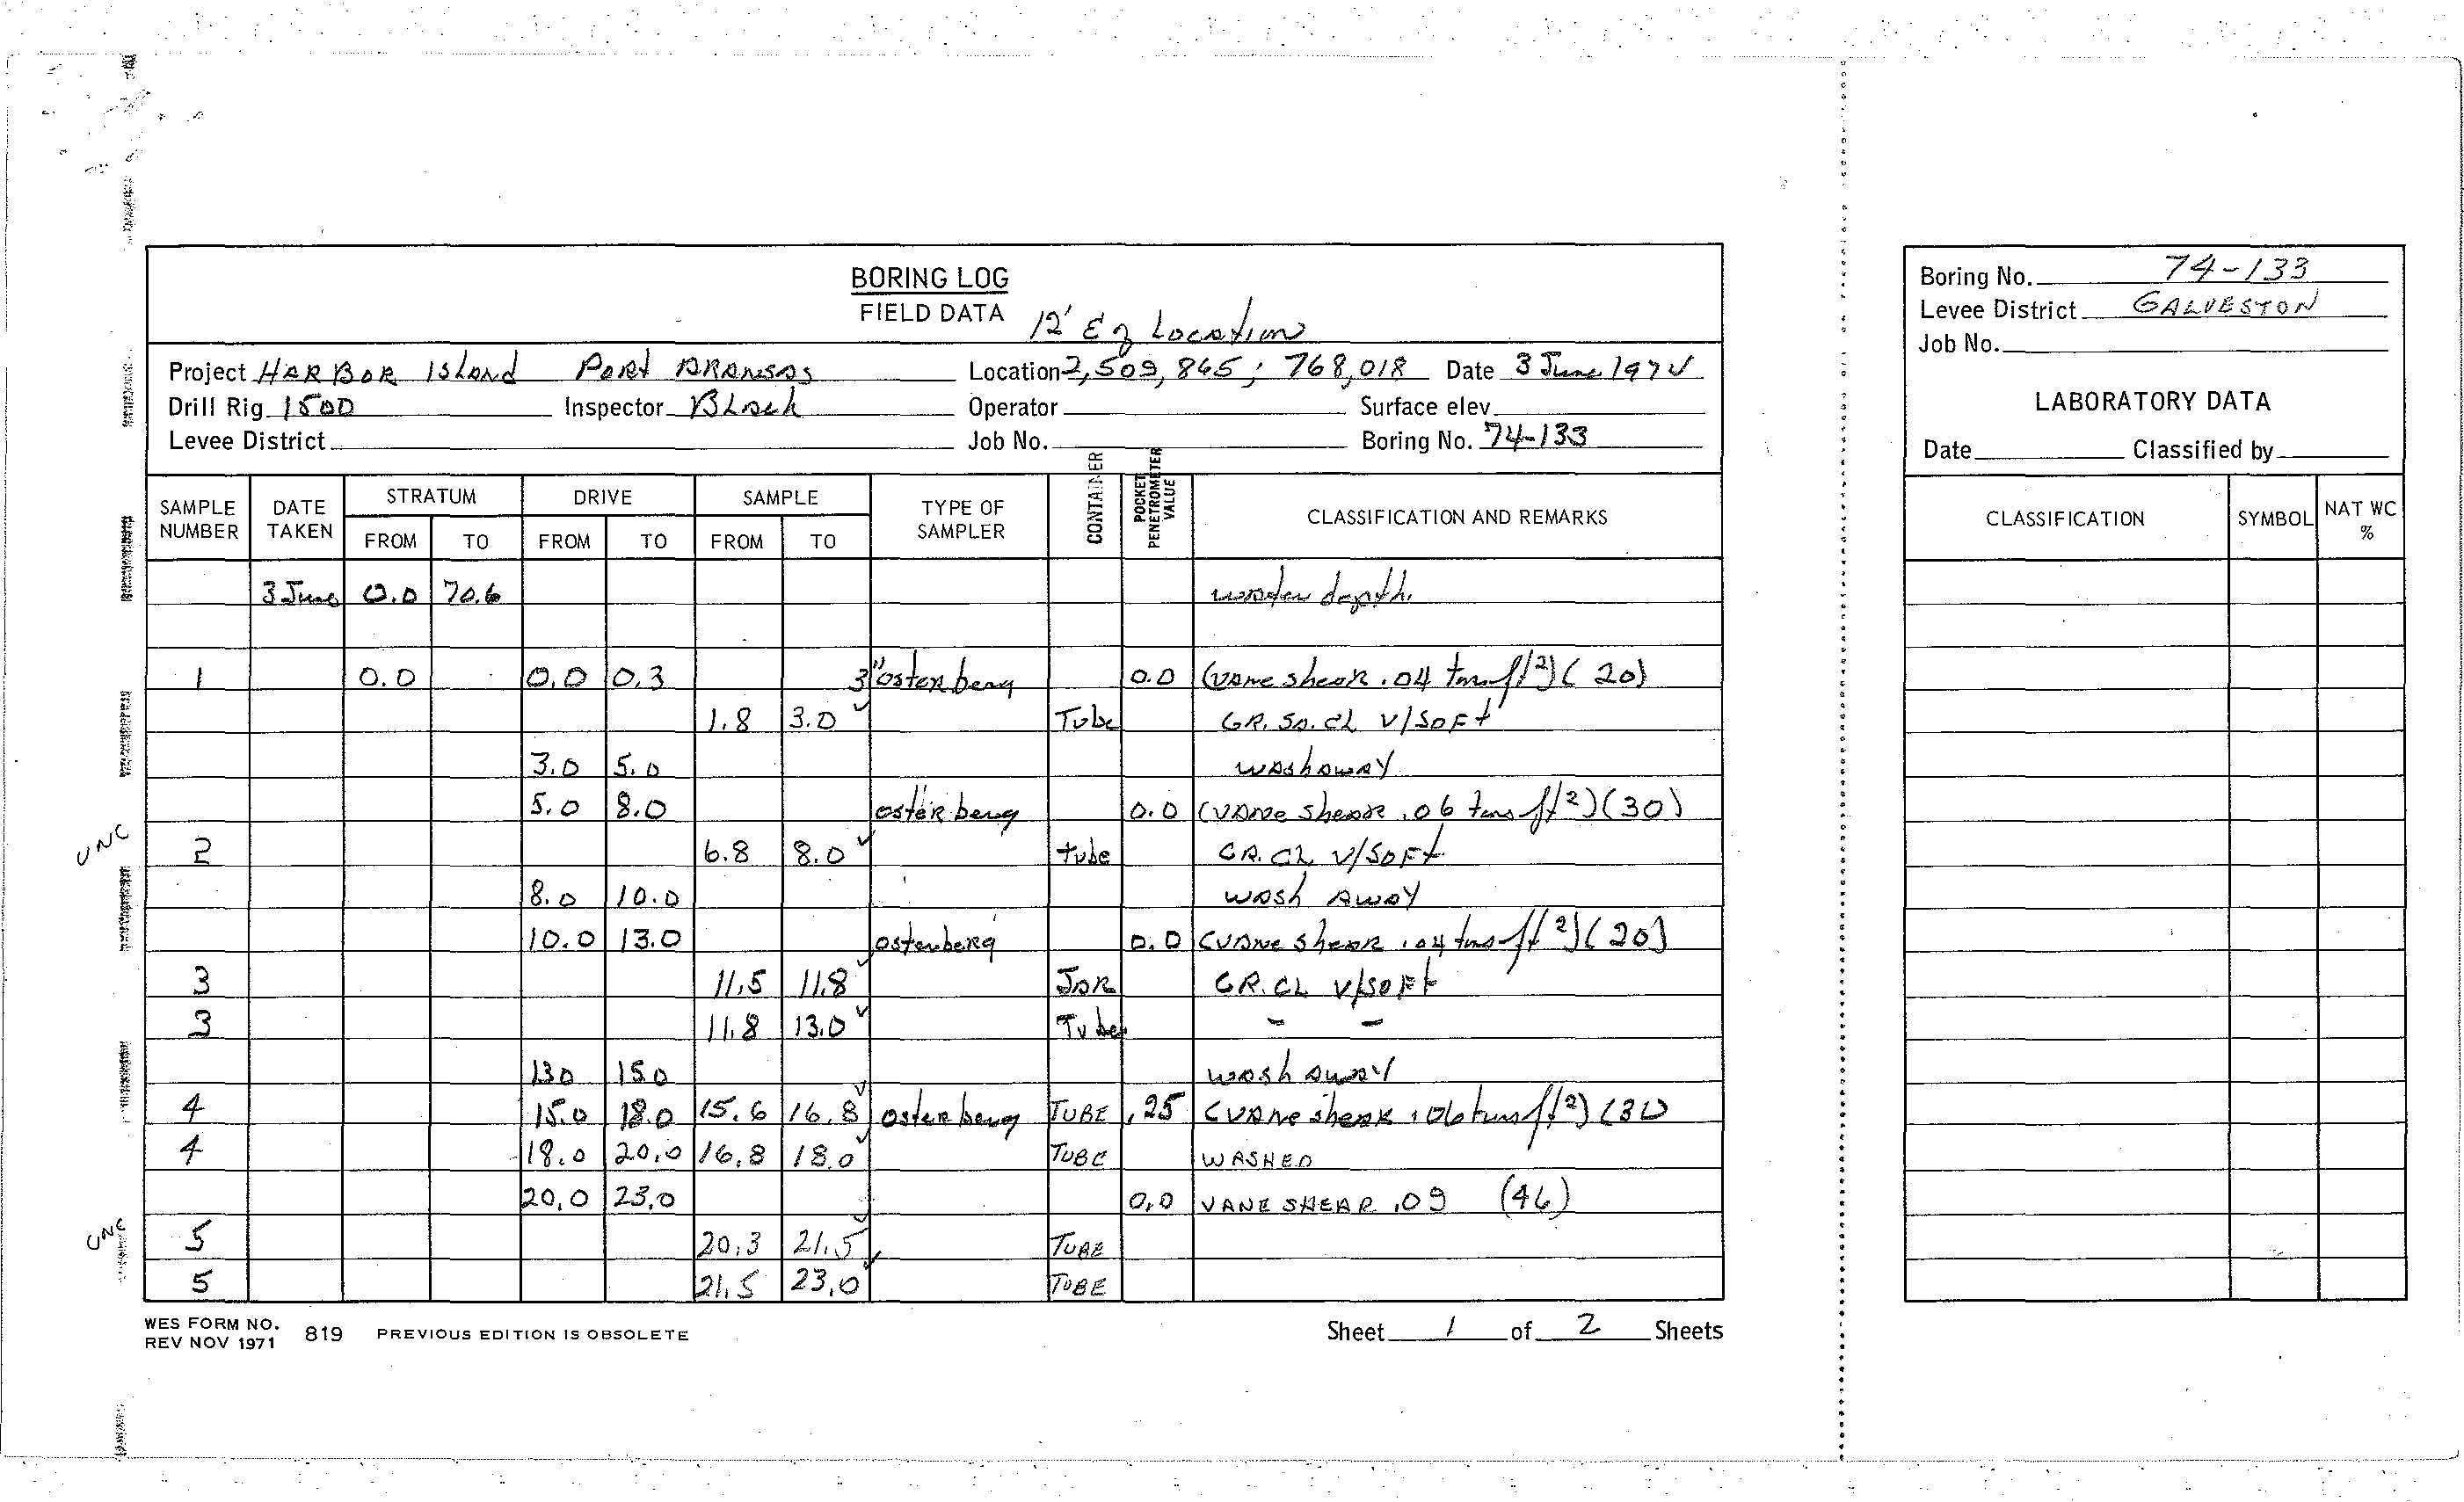 BORING LOG
FIELD DATA
12' E of Location
Project HARBOR Island Port Aransas Location 2,509,865; 768,018 Date 3 June 1974
Drill Rig 1500 Inspector Block Operator Surface elev.
Levee District Job No. Boring No. 74-133
SAMPLE NUMBER DATE TAKEN STRATUM FROM TO DRIVE FROM TO SAMPLE FROM TO TYPE OF SAMPLER CONTAINER POCKET PENETROMETER VALUE CLASSIFICATION AND REMARKS
3 June 0.0 70.6 water depth.
1 0.0 0.0 0.3 3" osterberg 0.0 (vane shear .04 tons ft2) (20)
1.8 3.0 Tube GR. SA. CL V/SOFT
3.0 5.0 washaway
5.0 8.0 osterberg 0.0 (vane shear .06 tons ft2) (30)
UNC 2 6.8 8.0 tube GR. CL V/SOFT
8.0 10.0 wash away
10.0 13.0 osterberg 0.0 (vane shear .04 tons ft2) (20)
3 11.5 11.8 JAR GR. CL V/SOFT
3 11.8 13.0 Tube - -
13.0 15.0 wash away
4 15.0 18.0 15.6 16.8 osterberg TUBE .25 (vane shear .06 tons ft2) (31)
4 18.0 20.0 16.8 18.0 TUBE WASHED
20.0 23.0 0.0 VANE SHEAR .09 (46)
UNC 5 20.3 21.5 TUBE
5 21.5 23.0 TUBE
WES FORM NO. 819 PREVIOUS EDITION IS OBSOLETE
REV NOV 1971
Sheet 1 of 2 Sheets
Boring No. 74-133
Levee District GALVESTON
Job No.
LABORATORY DATA
Date Classified by
CLASSIFICATION SYMBOL NAT WC %